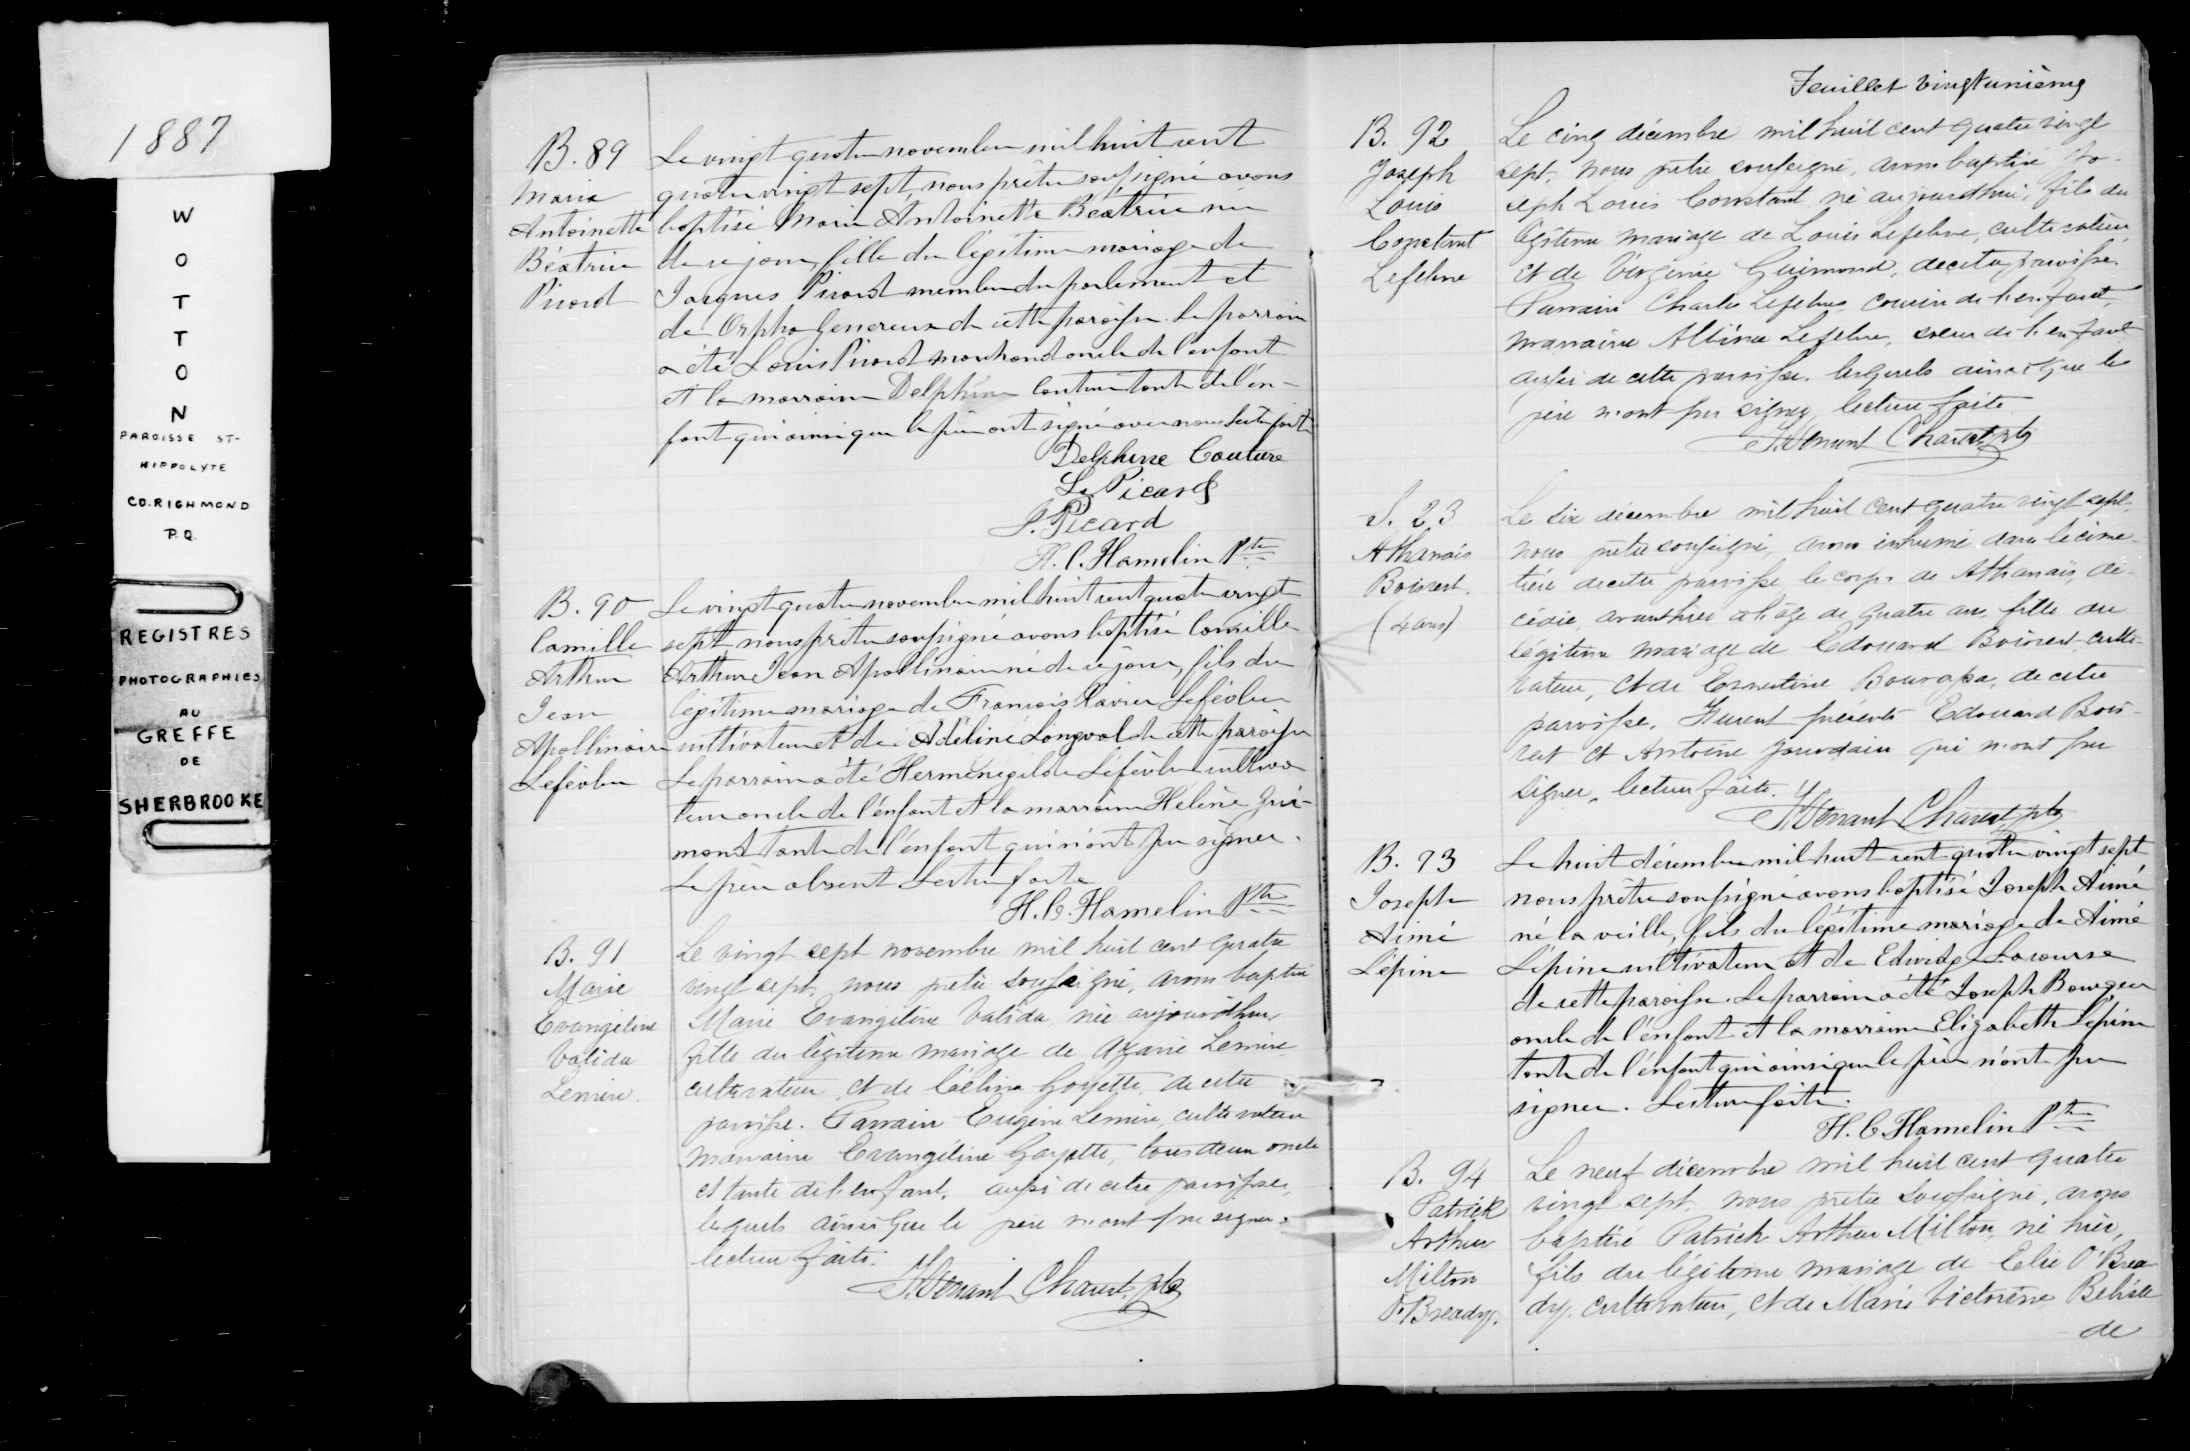 1887
W
O
T
T
O
N
PAROISSE ST-
HIPPOLYTE
CO. RICHMOND
P.Q.
REGISTRES
PHOTOGRAPHIÉS
AU
GREFFE
DE
SHERBROOKE
B. 89
Marie
Antoinette
Béatrice
Picard
Le vingt quatre novembre mil huit cent
quatre vingt sept, nous prêtre soussigné avons
baptisé Marie Antoinette Béatrice née
de ce jour, fille du légitime mariage de
Jacques Picard membre du parlement et
de Orpha Genereux de cette paroisse. Le parrain
a été Louis Picard marchand oncle de l'enfant
et la marraine Delphine Couture tante de l'en-
fant qui ainsi que le père ont signé avec nous lecture faite
Delphine Couture
Ls Picard
J. Picard
H. C. Hamelin Ptre
B. 90
Camille
Arthur
Jean
Apollinaire
Lefebvre
Le vingt quatre novembre mil huit cent quatre vingt
sept, nous prêtre soussigné avons baptisé Camille
Arthur Jean Apollinaire né de ce jour, fils du
légitime mariage de François Xavier Lefebvre
cultivateur et de Adéline Longval de cette paroisse
Le parrain a été Herménégilde Lefebvre cultiva
teur oncle de l'enfant et la marraine Helène Gui-
mond tante de l'enfant qui n'ont pu signer.
Le père absent Lecture faite
H. C. Hamelin Ptre
B. 91
Marie
Evangeline
Valida
Lemire.
Le vingt sept novembre mil huit cent quatre
vingt sept, nous prêtre soussigné, avons baptisé
Marie Evangéline Valida née aujourd'hui,
fille du légitime mariage de Azarie Lemire
cultivateur, et de Célina Goyette, de cette
paroisse. Parrain Eugène Lemire, cultivateur
marraine Evangéline Goyette, tous deux oncle
et tante de l'enfant, aussi de cette paroisse,
lesquels ainsi que le père n'ont pu signer.
lecture faite.
J. Venant Charest, ptre
Feuillet vingtunième
B. 92
Joseph
Louis
Constant
Lefebvre
Le cinq décembre mil huit cent quatre vingt
sept, nous prêtre soussigné, avons baptisé Jo-
seph Louis Constant né aujourd'hui, fils du
légitime mariage de Louis Lefebvre, cultivateur,
et de Virginie Guimond, de cette paroisse.
Parrain Charles Lefebvre, cousin de l'enfant,
marraine Albina Lefebvre, soeur de l'enfant
aussi de cette paroisse, lesquels ainsi que le
père n'ont pu signer, lecture faite
J. Venant Charest, ptre
S. 23
Athanais
Boisvert.
(4 ans)
Le six décembre mil huit cent quatre vingt sept
nous prêtre soussigné, avons inhumé dans le cime-
tière de cette paroisse le corps de Athanaïs, dé-
cédée, avant hier à l'âge de quatre ans, fille du
légitime mariage de Edouard Boisvert, culti-
vateur, et de Ernestine Bourassa, de cette
paroisse. Furent présents Edouard Bois-
vert et Antoine Jourdain qui n'ont pu
signer, lecture faite.
J. Venant Charest, ptre
B. 93
Joseph
Aimé
Lépine
Le huit décembre mil huit cent quatre vingt sept
nous prêtre soussigné avons baptisé Joseph Aimé
né la veille, fils du légitime mariage de Aimé
Lépine cultivateur et de Edwidge Lacourse
de cette paroisse. Le parrain a été Joseph Bourgeois
oncle de l'enfant et la marraine Elizabeth Lépine
tante de l'enfant qui ainsi que le père n'ont pu
signer. Lecture faite.
H. C. Hamelin Ptre
B. 94
Patrick
Arthur
Milton
O'Bready.
Le neuf décembre mil huit cent quatre
vingt sept, nous prêtre soussigné, avons
baptisé Patrick Arthur Milton, né hier,
fils du légitime mariage de Elie O'Brea
dy, cultivateur, et de Marie Victorine Béliste
de